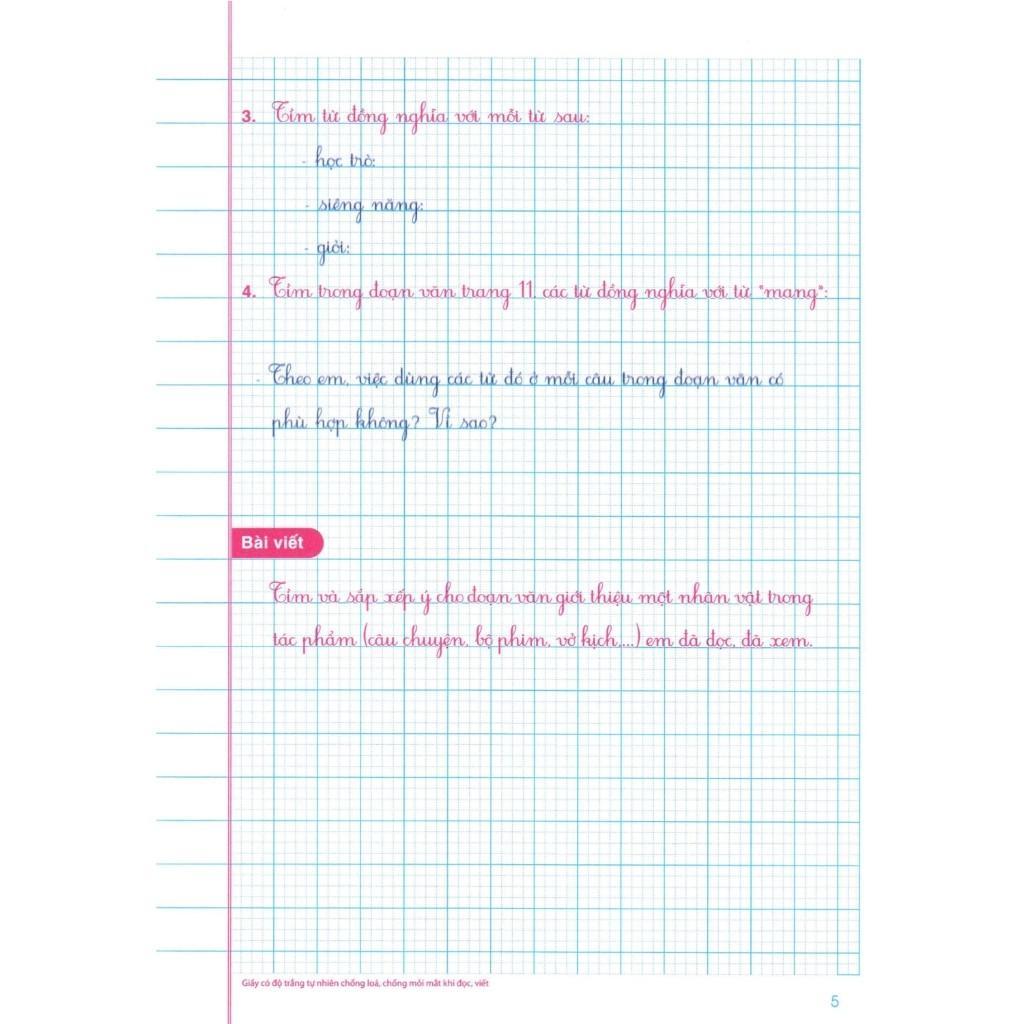 3. Tìm từ đồng nghĩa với mỗi từ sau:
- học trò:
- siêng năng:
- giỏi:
4. Tìm trong đoạn văn trang 11, các từ đồng nghĩa với từ "mang":
- Theo em, việc dùng các từ đó ở mỗi câu trong đoạn văn có
phù hợp không? Vì sao?
Bài viết
Tìm và sắp xếp ý cho đoạn văn giới thiệu một nhân vật trong
tác phẩm (câu chuyện, bộ phim, vở kịch,...) em đã đọc, đã xem.
Giấy có độ trắng tự nhiên chống loá, chống mỏi mắt khi đọc, viết
5